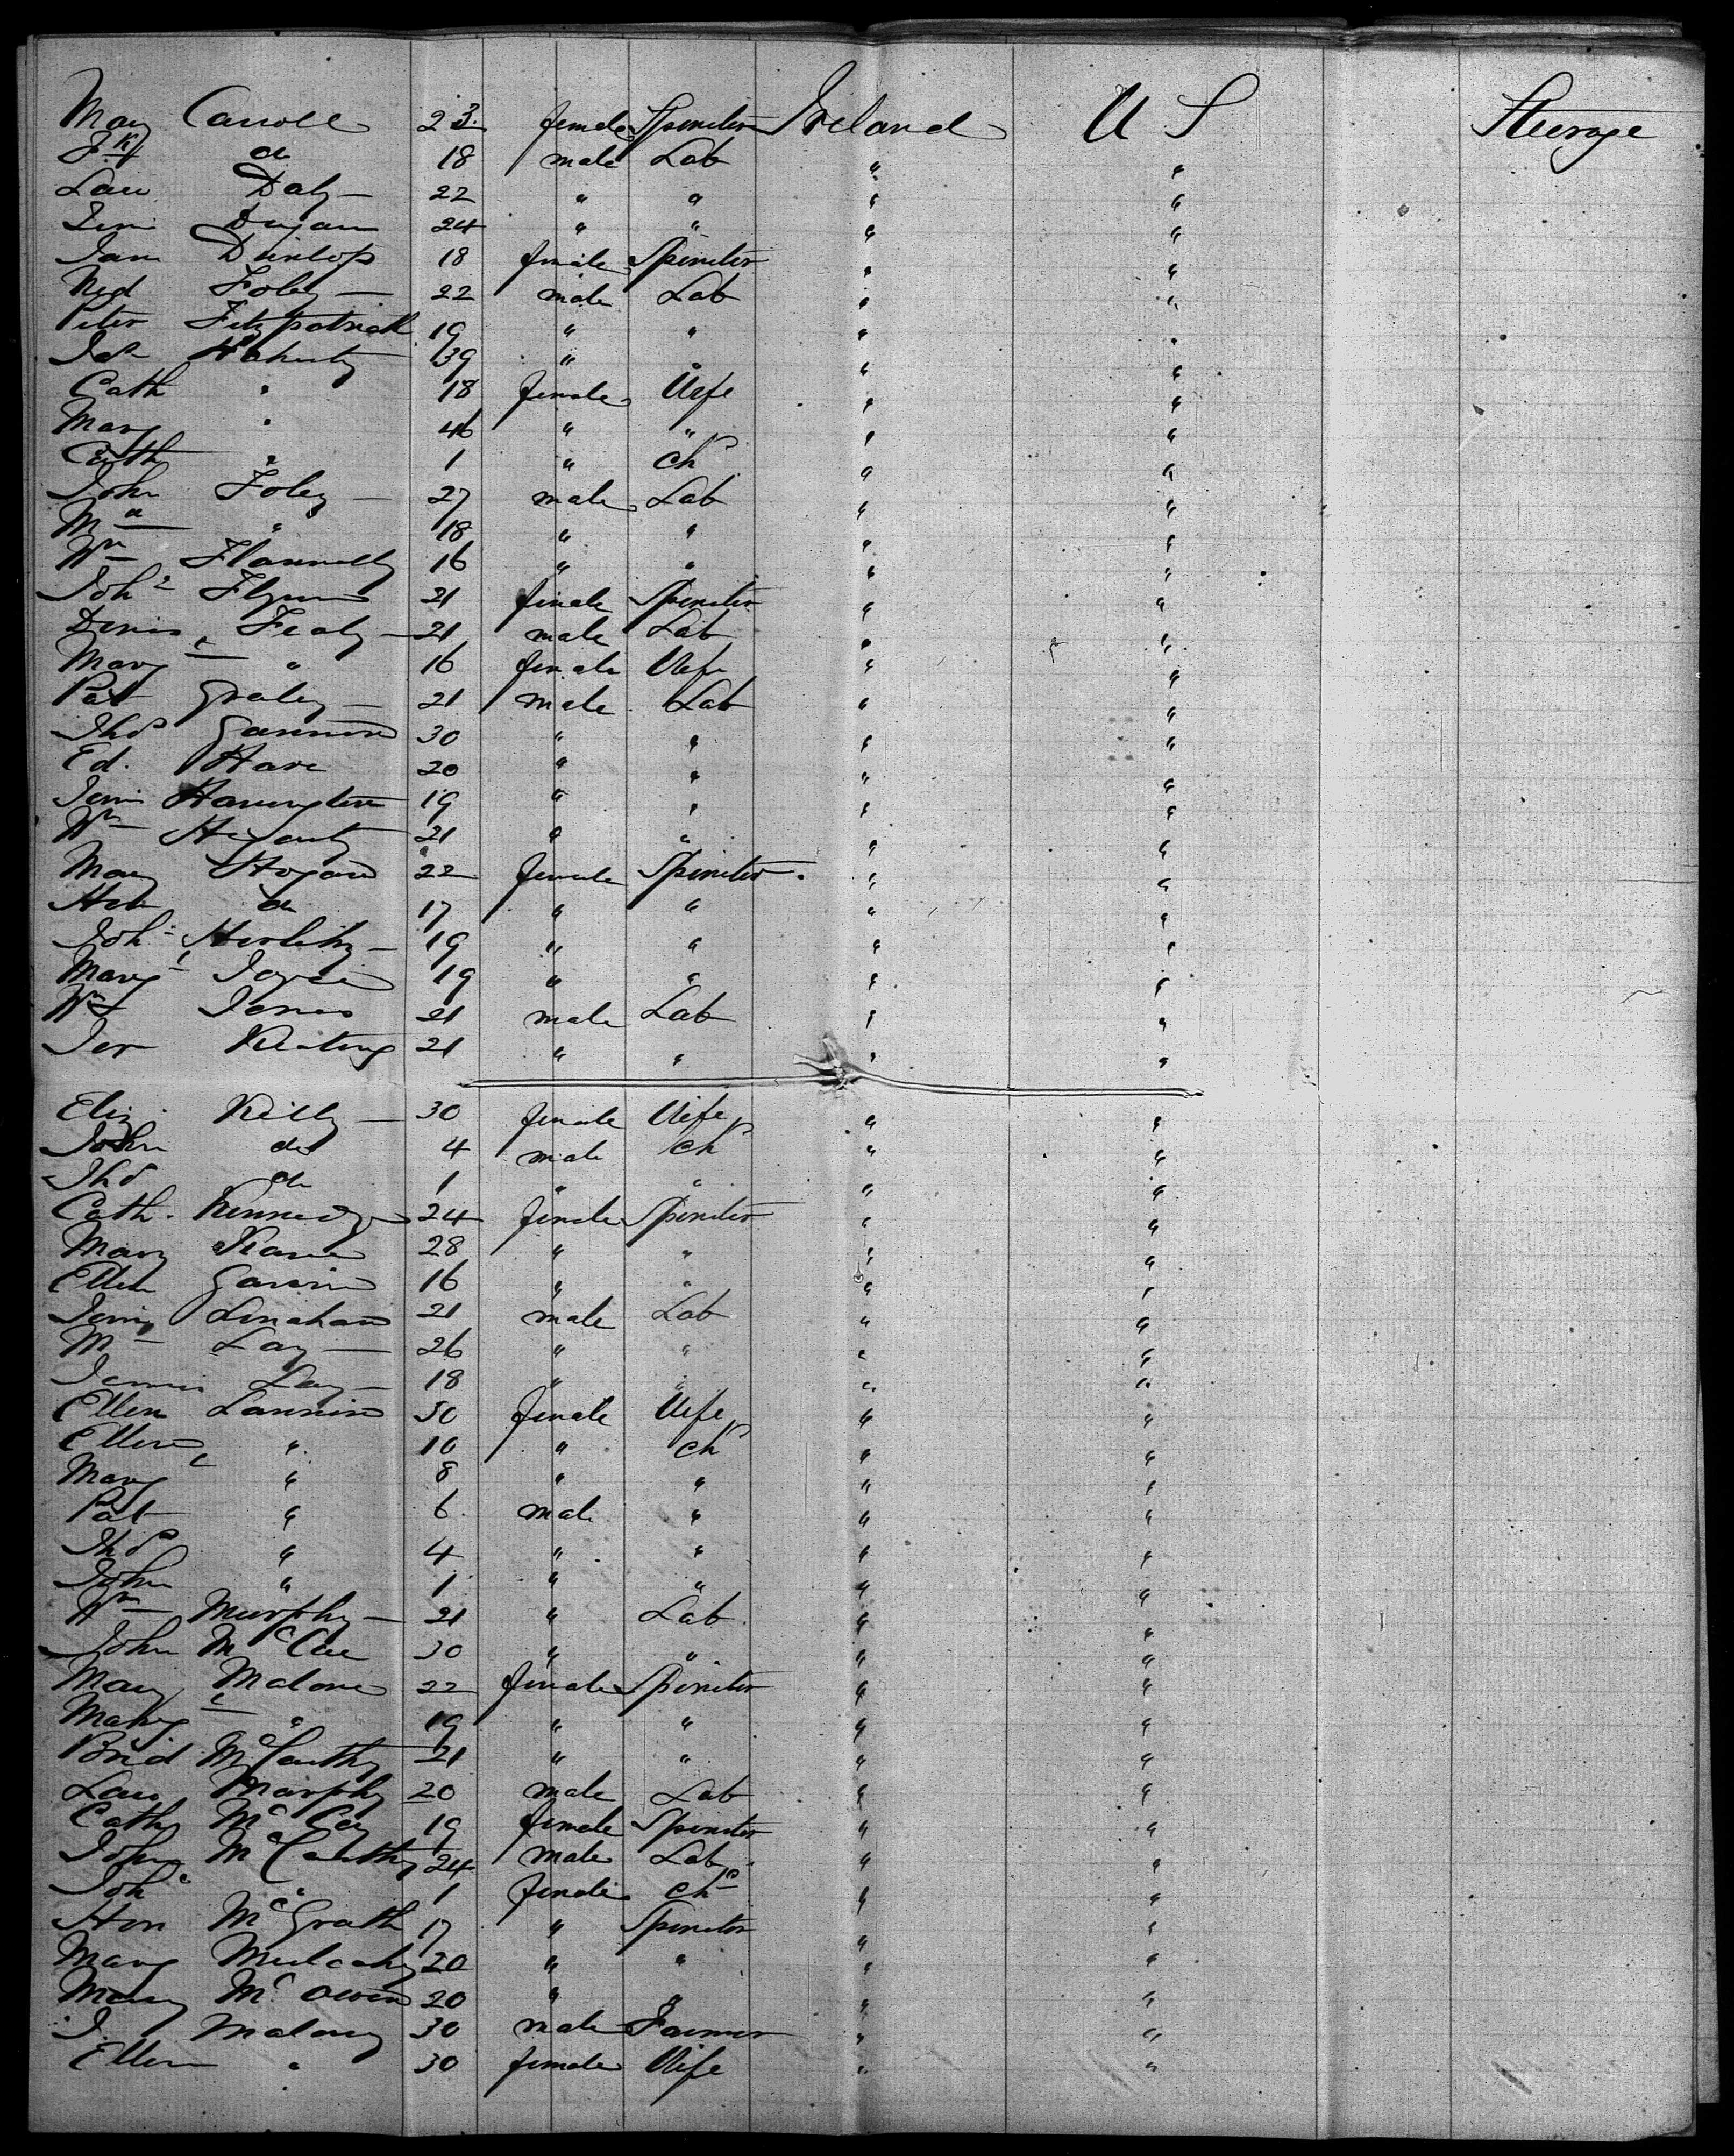 Mary Carroll 23 female Spinster Ireland U S Steerage
do 18 male Lab " "
Law Daly — 22 " " " "
Dugan 24 " " " "
Jane Dunlop 18 female Spinster " "
Ned Foley — 22 male Lab " "
Peter Fitzpatrick 19 " " " "
39 " " " "
Cath " 18 female Wife " "
Mary " 46 " " " "
Cath " 1 " Ch " "
John Foley — 27 male Lab " "
" 18 " " " "
Wm Flannelly 16 " " " "
Joh Flynn 21 female Spinster " "
Denis Fealy — 21 male Lab " "
Marg " 16 female Wife " "
Pat Graley — 21 male Lab " "
Thos Gannon 30 " " " "
Ed. Hare 20 " " " "
Harrington 19 " " " "
Wm Hegarty 21 " " " "
Mary Hogan 22 female Spinster " "
Han do 17 " " " "
Joh Herlihy — 19 " " " "
Marg Joyce 19 " " " "
Wm Jones 21 male Lab " "
Jer Keating 21 " " " "
Eliz Kelly — 30 female Wife " "
John do 4 male Ch " "
Thos do 1 " " " "
Cath. Kennedy 24 female Spinster " "
Mary Kane 28 " " " "
Ellen 16 " " " "
Linahan 21 male Lab " "
M Lay — 26 " " " "
James Lay — 18 " " " "
Ellen Lannin 30 female Wife " "
Ellen " 10 " Ch " "
Marg " 8 " " " "
Pat " 6 male " " "
Thos " 4 " " " "
John " 1 " " " "
Wm Murphy — 21 " Lab " "
John McCue 30 " " " "
Mary Malone 22 female Spinster " "
Marg " 19 " " " "
Brid McCarthy 21 " " " "
Law Murphy 20 male Lab " "
Cath McCoy 19 female Spinster " "
John McCarthy 24 male Lab " "
Joh " 1 female Ch " "
Hon McGrath 17 " Spinster " "
Marg Mulcahy 20 " " " "
Mary McOwen 20 " " " "
J. Malony 30 male Farmer " "
Ellen " 30 female Wife " "